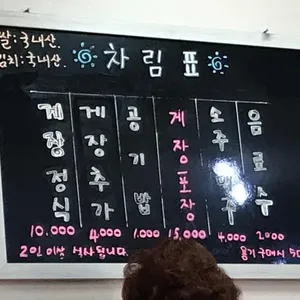 쌀:국내산.
김치:국내산.
차림표
게장정식 10.000
게장추가 4.000
공기밥 1.000
게장포장 15,000
소주맥주 4,000
음료수 2000
2인이상 식사됩니다.
용기구매시 5